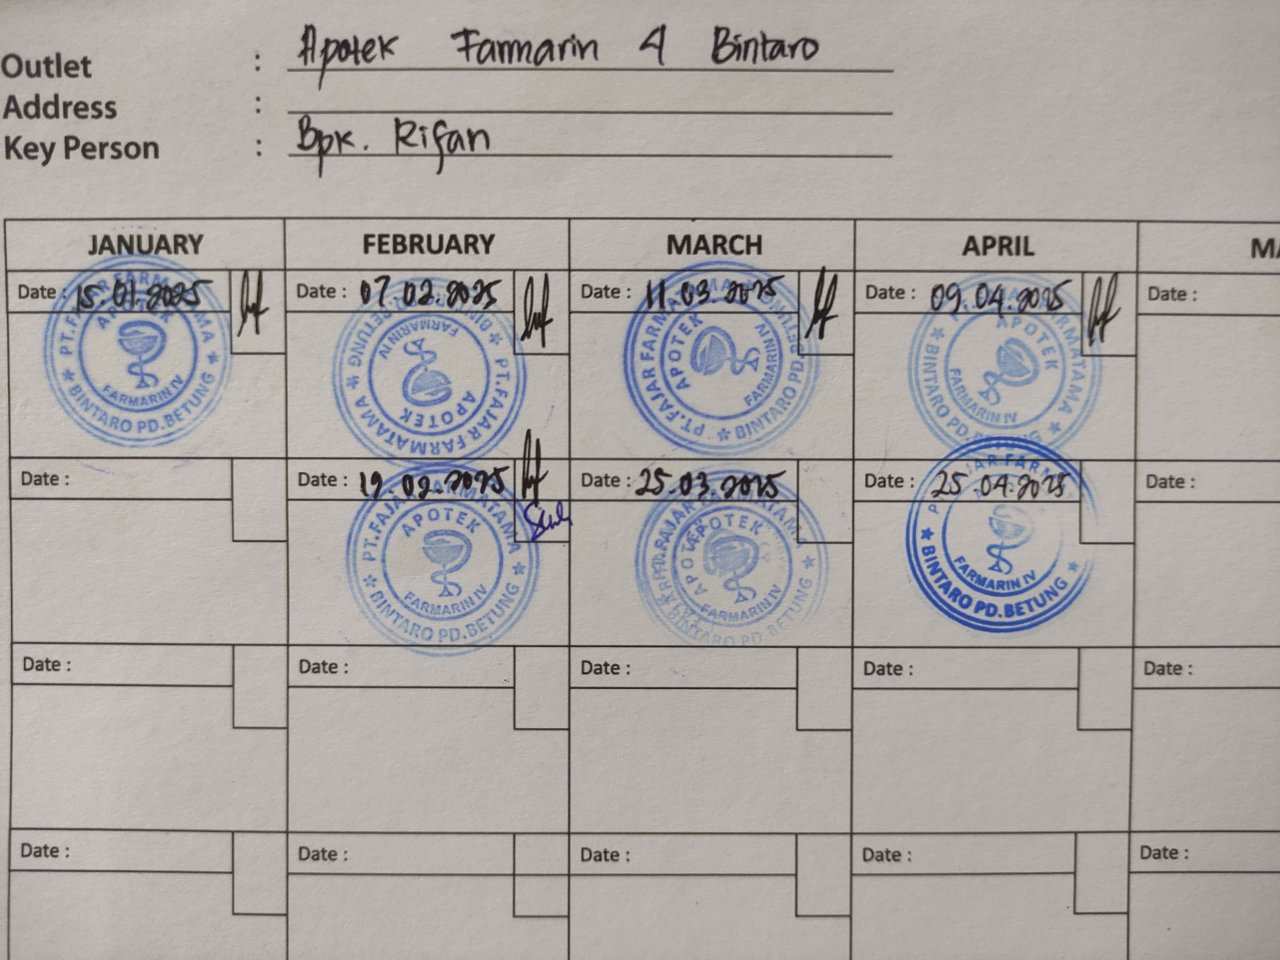 Outlet : Apotek Farmarin 4 Bintaro
Address :
Key Person : Bpk. Rifan
JANUARY FEBRUARY MARCH APRIL
Date : 15.01.2025 Date : 07.02.2025 Date : 11.03.2025 Date : 09.04.2025 Date :
APOTEK
FARMARIN IV
BINTARO PD.BETUNG
PT.FAJAR FARMATAMA
APOTEK
FARMARIN IV
PT.FAJAR FARMATAMA
APOTEK
FARMARIN IV
BINTARO PD.
FARMATAMA
APOTEK
FARMARIN IV
BINTARO PD.
Date : Date : 19.02.2025 Date : 25.03.2025 Date : 25.04.2025 Date :
PT.FAJAR FARMATAMA
APOTEK
FARMARIN IV
BINTARO PD.BETUNG
APOTEK
FARMARIN IV
BINTARO PD.
FARMARIN IV
BINTARO PD.BETUNG
Date : Date : Date : Date : Date :
Date : Date : Date : Date : Date :